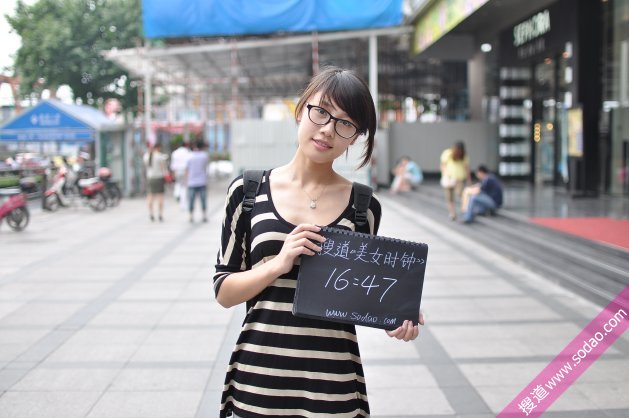 SEPHORA
搜道“美女时钟”
16:47
www.sodao.com
搜道 www.sodao.com